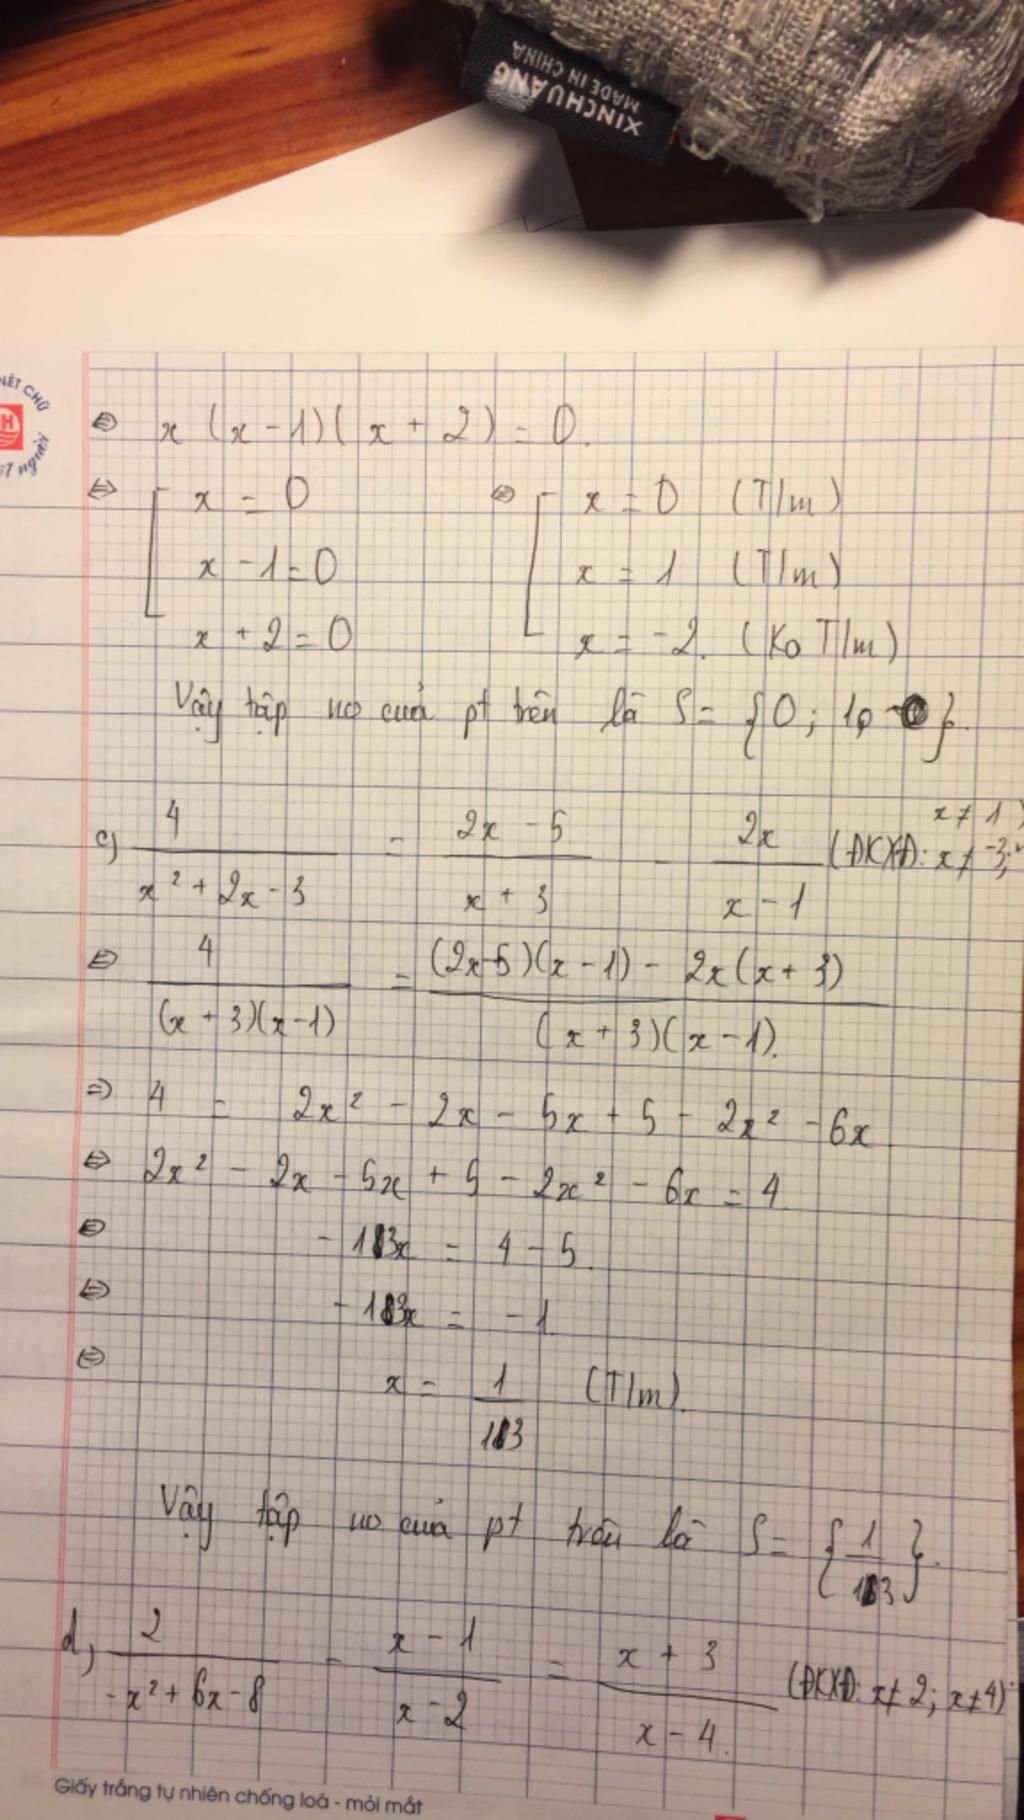 XINCHUANG
MADE IN CHINA
NÉT CHỮ
⇔ x (x - 1)(x + 2) = 0.
⇔ [ x = 0 ⇔ [ x = 0 (T/m)
x - 1 = 0 x = 1 (T/m)
x + 2 = 0 x = -2. (Ko T/m)
Vậy tập no của pt trên là S = {0; 1 }.
c) 4/(x² + 2x - 3) = (2x - 5)/(x + 3) - 2x/(x - 1) (ĐKXĐ: x ≠ -3; x ≠ 1)
⇔ 4/((x + 3)(x - 1)) = ((2x - 5)(x - 1) - 2x(x + 3))/((x + 3)(x - 1)).
⇒ 4 = 2x² - 2x - 5x + 5 - 2x² - 6x
⇔ 2x² - 2x - 5x + 5 - 2x² - 6x = 4
⇔ -13x = 4 - 5.
⇔ -13x = -1
⇔ x = 1/13 (T/m).
Vậy tập no của pt trên là S = {1/13}.
d, 2/(-x² + 6x - 8) - (x - 1)/(x - 2) = (x + 3)/(x - 4). (ĐKXĐ: x ≠ 2; x ≠ 4)
Giấy trắng tự nhiên chống loá - mỏi mắt